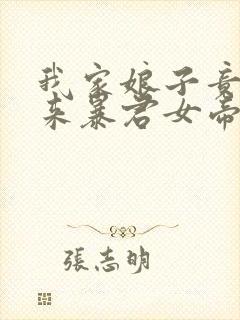 我家娘子竟
来暴君女帝
張志明